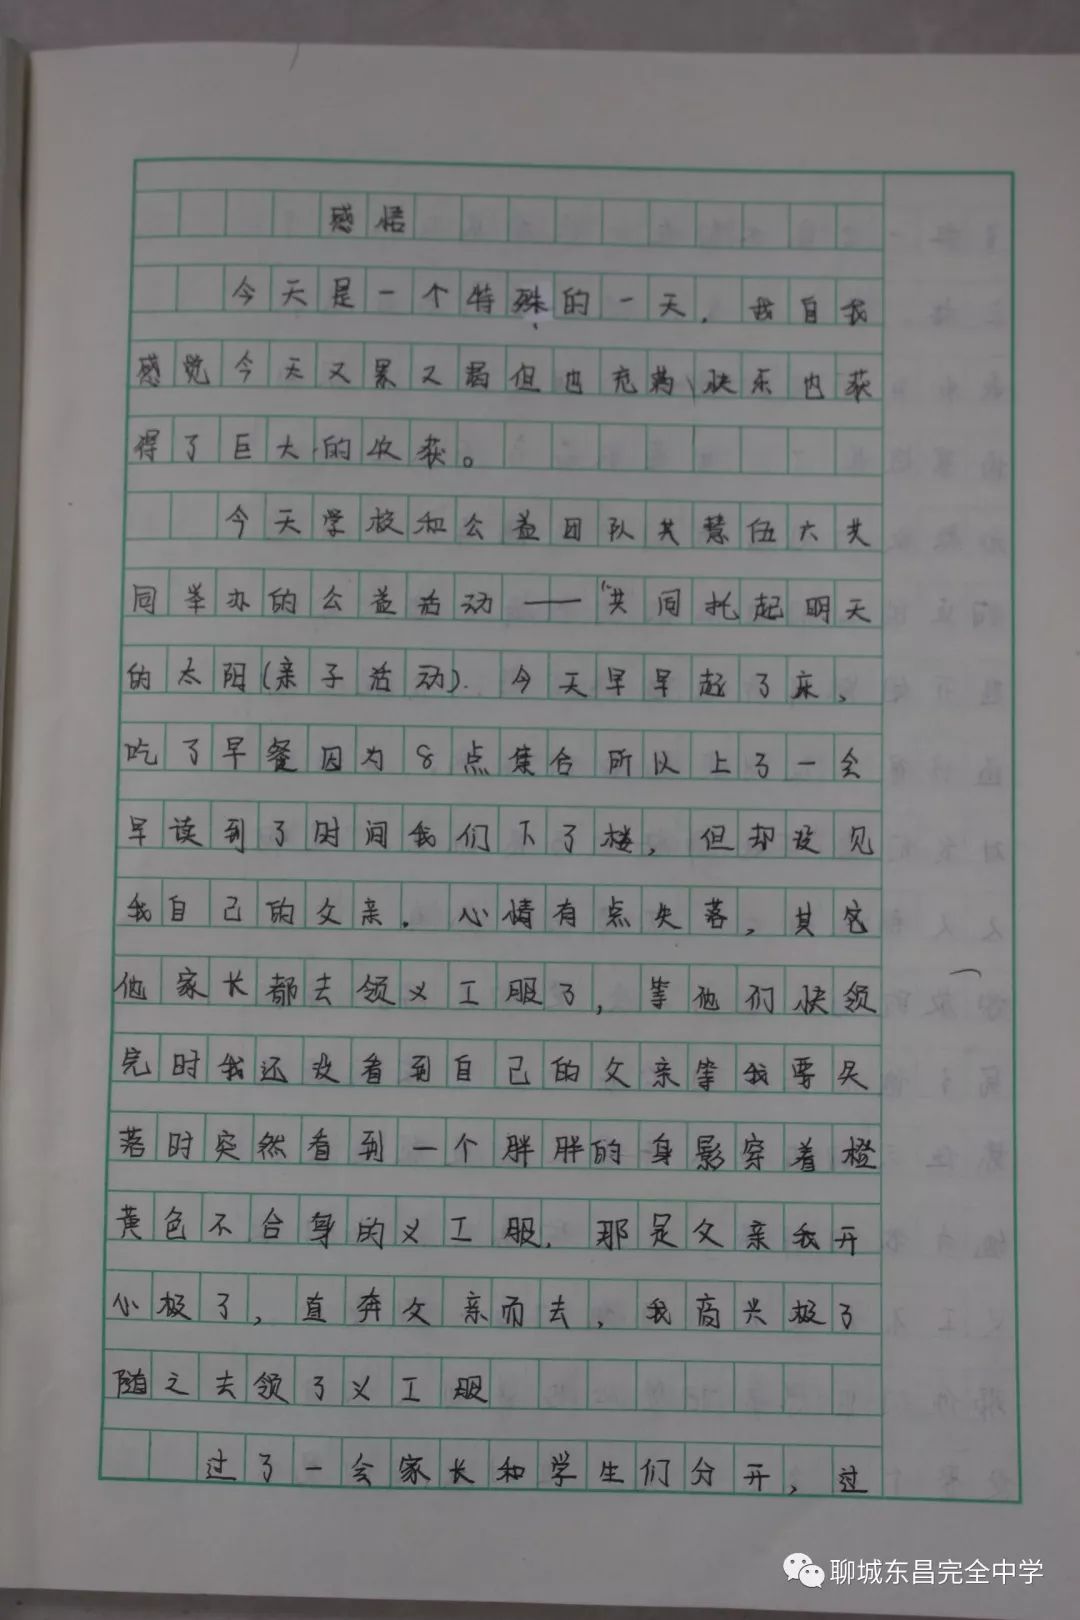 感悟
今天是一个特殊的一天，我自我
感觉今天又累又困但也充满快乐也获
得了巨大的收获。
今天学校和公益团队共慧伍六共
同举办的公益活动——“共同托起明天
的太阳(亲子活动).今天早早起了床、
吃了早餐因为8点集合所以上了一会
早读到了时间我们下了楼，但却没见
我自己的父亲．心情有点失落，其它
他家长都去领义工服了，等他们快领
完时我还没看到自己的父亲等我要失
落时突然看到一个胖胖的身影穿着橙
黄色不合身的义工服．那是父亲我开
心极了，直奔父亲而去，我高兴极了
随之去领了义工服
过了一会家长和学生们分开，过
聊城东昌完全中学